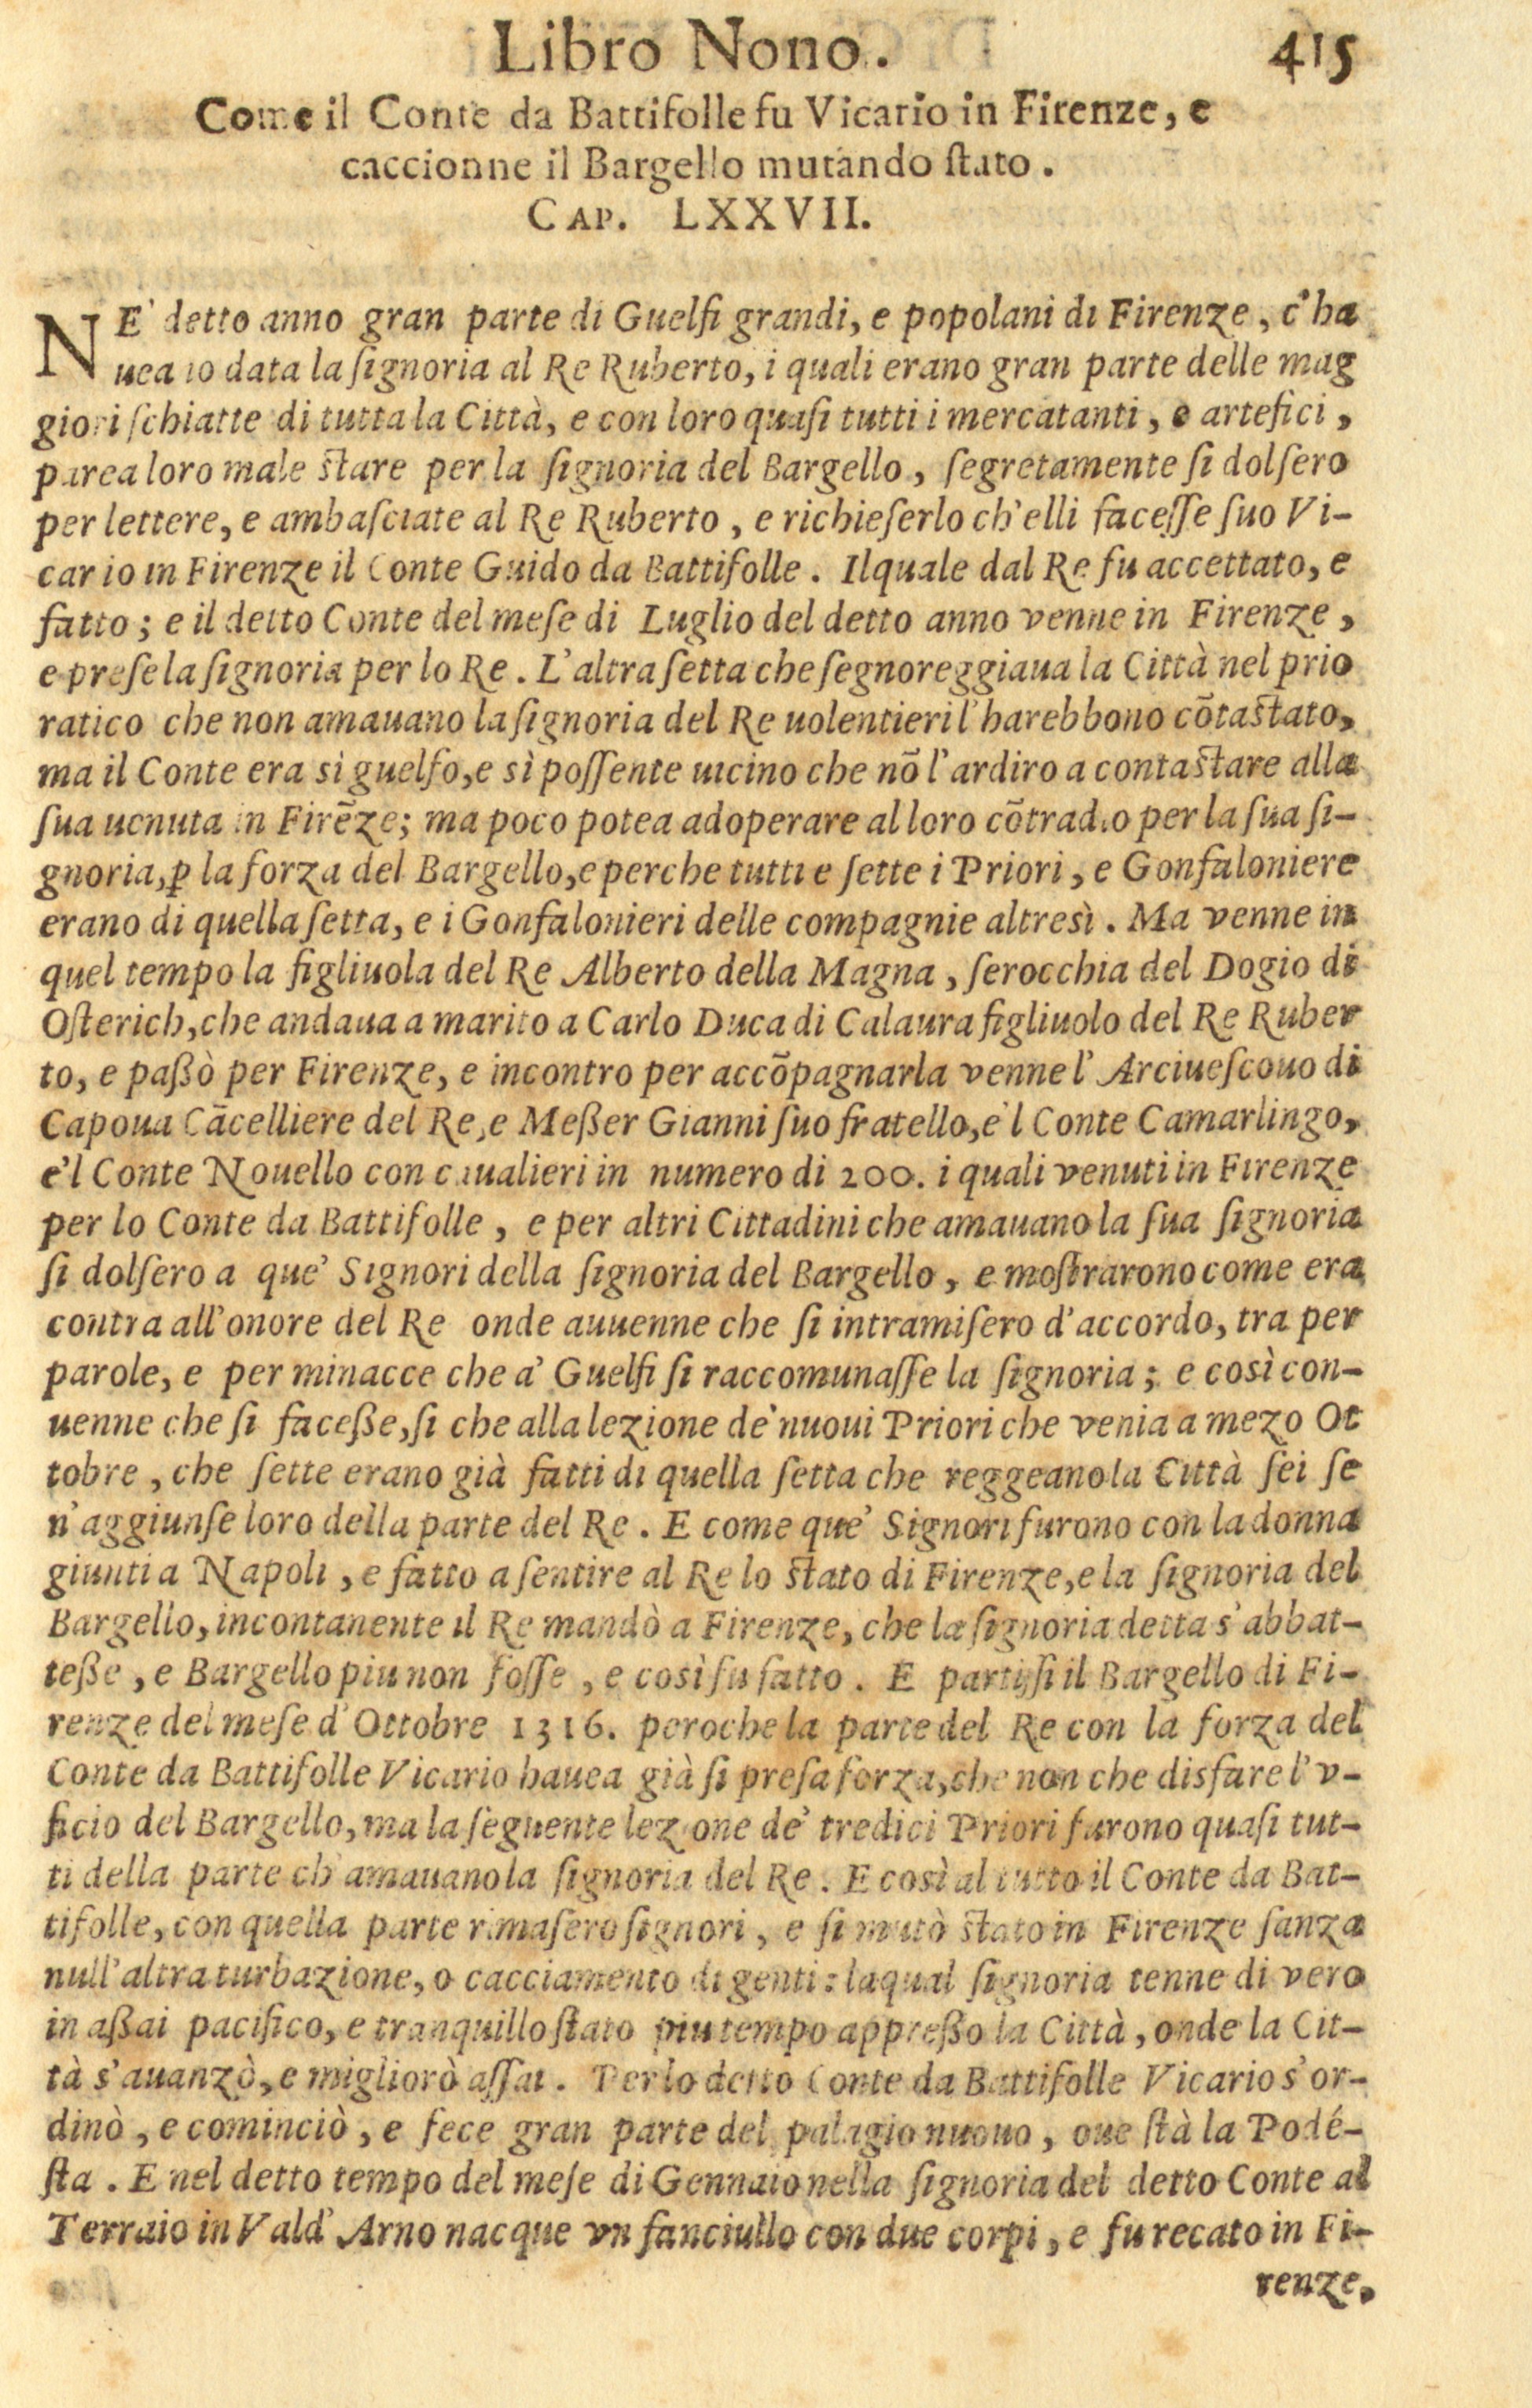 Libro Nono. 415
Come il Conte da Battifolle fu Vicario in Firenze, e
caccionne il Bargello mutando ſtato.
CAP. LXXVII.
NE' detto anno gran parte di Guelfi grandi, e popolani di Firenze, c'ha
ueano data la ſignoria al Re Ruberto, i quali erano gran parte delle mag
giori ſchiatte di tutta la Città, e con loro quaſi tutti i mercatanti, e artefici,
parea loro male ſtare per la ſignoria del Bargello, ſegretamente ſi dolſero
per lettere, e ambaſciate al Re Ruberto, e richieſerlo ch'elli faceſſe ſuo Vi-
cario in Firenze il Conte Guido da Battifolle. Ilquale dal Re fu accettato, e
fatto; e il detto Conte del meſe di Luglio del detto anno venne in Firenze,
e preſe la ſignoria per lo Re. L'altra ſetta che ſegnoreggiaua la Città nel prio
ratico che non amauano la ſignoria del Re uolentieri l'harebbono cõtaſtato,
ma il Conte era sì guelfo, e sì poſſente uicino che nõ l'ardiro a contaſtare alla
ſua uenuta in Firẽze; ma poco potea adoperare al loro cõtradio per la ſua ſi-
gnoria, ꝑ la forza del Bargello, e perche tutti e ſette i Priori, e Gonfaloniere
erano di quella ſetta, e i Gonfalonieri delle compagnie altresì. Ma venne in
quel tempo la figliuola del Re Alberto della Magna, ſerocchia del Dogio di
Oſterich, che andaua a marito a Carlo Duca di Calaura figliuolo del Re Ruber
to, e paßò per Firenze, e incontro per accõpagnarla venne l'Arciueſcouo di
Capoua Cãcelliere del Re, e Meßer Gianni ſuo fratello, e'l Conte Camarlingo,
e'l Conte Nouello con caualieri in numero di 200. i quali venuti in Firenze
per lo Conte da Battifolle, e per altri Cittadini che amauano la ſua ſignoria
ſi dolſero a que' Signori della ſignoria del Bargello, e moſtrarono come era
contra all'onore del Re onde auuenne che ſi intramiſero d'accordo, tra per
parole, e per minacce che a' Guelfi ſi raccomunaſſe la ſignoria; e così con-
uenne che ſi faceße, ſi che alla lezione de' nuoui Priori che venia a mezo Ot
tobre, che ſette erano già fatti di quella ſetta che reggeano la Città ſei ſe
n'aggiunſe loro della parte del Re. E come que' Signori furono con la donna
giunti a Napoli, e fatto a ſentire al Re lo ſtato di Firenze, e la ſignoria del
Bargello, incontanente il Re mandò a Firenze, che la ſignoria detta s'abbat-
teße, e Bargello piu non foſſe, e così fu fatto. E partiſsi il Bargello di Fi-
renze del meſe d'Ottobre 1316. peroche la parte del Re con la forza del
Conte da Battifolle Vicario hauea già ſi preſa forza, che non che disfare l'v-
ficio del Bargello, ma la ſeguente lezione de' tredici Priori furono quaſi tut-
ti della parte ch'amauano la ſignoria del Re. E così al tutto il Conte da Bat-
tifolle, con quella parte rimaſero ſignori, e ſi mutò ſtato in Firenze ſanza
null'altra turbazione, o cacciamento di genti: laqual ſignoria tenne di vero
in aßai pacifico, e tranquillo ſtato piu tempo appreßo la Città, onde la Cit-
tà s'auanzò, e migliorò aſſai. Per lo detto Conte da Battifolle Vicario s'or-
dinò, e cominciò, e fece gran parte del palagio nuouo, oue ſtà la Podé-
ſta. E nel detto tempo del meſe di Gennaio nella ſignoria del detto Conte al
Terraio in Vald'Arno nacque vn fanciullo con due corpi, e fu recato in Fi-
renze,